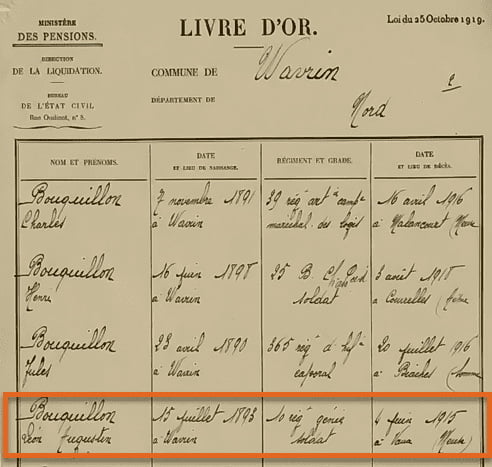 MINISTÈRE
DES PENSIONS.
DIRECTION
DE LA LIQUIDATION.
BUREAU
DE L'ÉTAT CIVIL
Rue Oudinot, n° 8.
LIVRE D'OR.
Loi du 25 Octobre 1919.
COMMUNE DE Wavrin
DÉPARTEMENT DE Nord
2
NOM ET PRÉNOMS.
DATE
ET LIEU DE NAISSANCE.
RÉGIMENT ET GRADE.
DATE
ET LIEU DE DÉCÈS.
Bouquillon 7 novembre 1891 39 rég art camp 16 avril 1916
Charles à Wavrin maréchal des logis à Malancourt (Meuse
Bouquillon 16 juin 1898 25 B. Chas 3 août 1918
Henri à Wavrin soldat à Courcelles
Bouquillon 23 avril 1890 365 rég d'inf 20 juillet 1916
Jules à Wavrin caporal à Biaches (Somme
Bouquillon 15 juillet 1893 10 rég génie 4 juin 1915
Léon Augustin à Wavrin soldat à Vaux (Meuse)